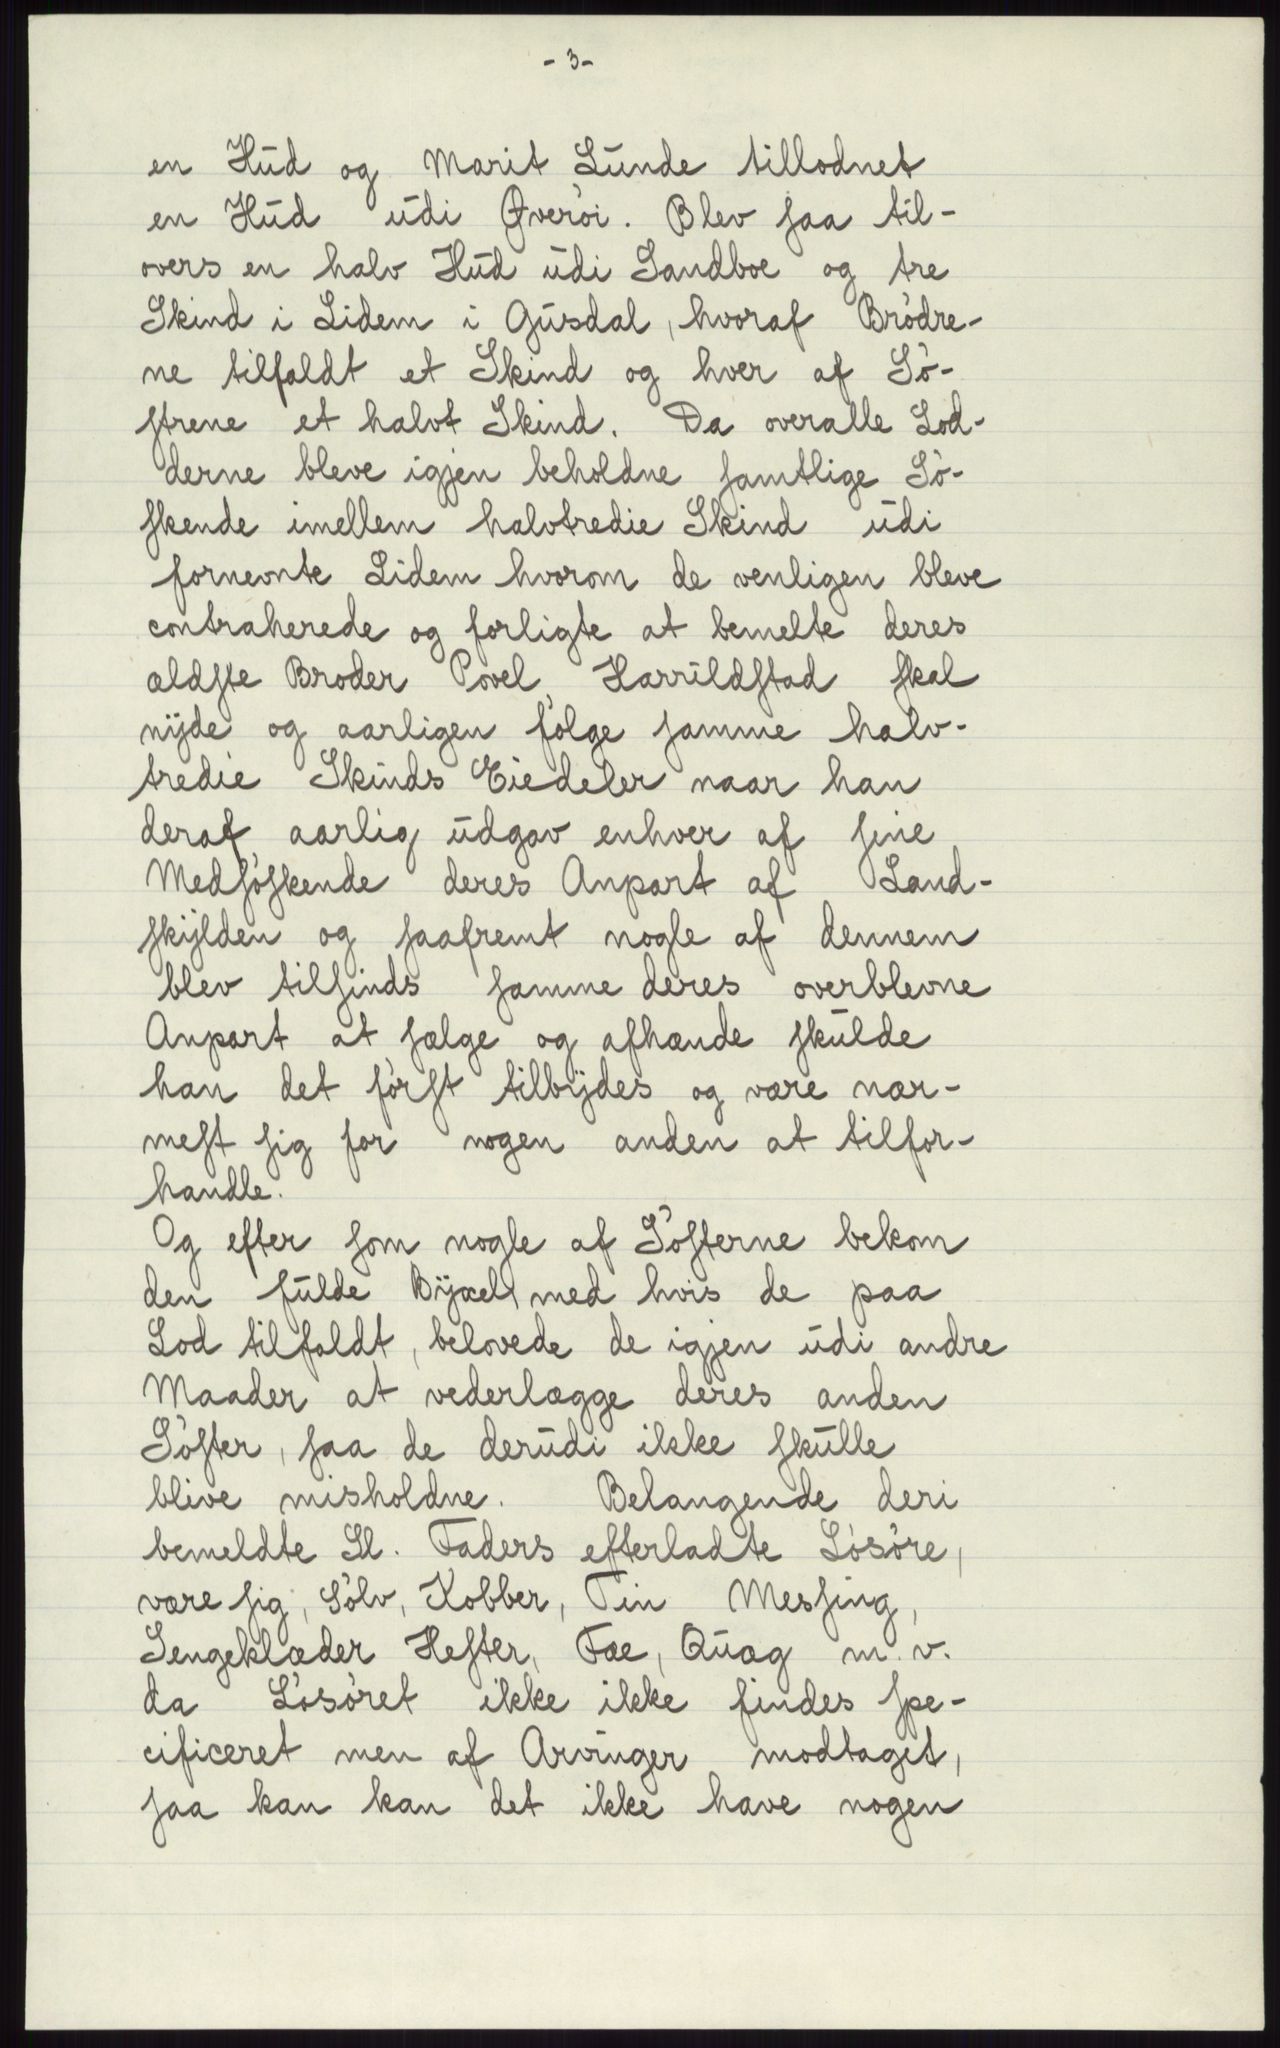 - 3 -
en Hud og Marit Lunde tillodnet
en Hud udi Øverøi. Blev saa til-
overs en halv Hud udi Sandboe og tre
Skind i Lidem i Gusdal, hvoraf Brødre-
ne tilfaldt et Skind og hver af Sø-
strene et halvt Skind. Da overalle Lod-
derne bleve igjen beholdne samtlige Sø-
skende imellem halvtredie Skind udi
fornevnte Lidem hvorom de venligen bleve
contraherede og forligte at bemelte deres
ældste Broder Povel, Harrildstad skal
nyde og aarligen følge samme halv-
tredie Skinds Eiedeler naar han
deraf aarlig udgav enhver af sine
Medsøskende deres Anpart af Land-
skylden og saafremt nogle af dennem
blev tilsinds samme deres overblevne
Anpart at sælge og afhænde skulde
han det først tilbydes og være nær-
mest sig for nogen anden at tilfor-
handle.
Og efter som nogle af Søsterne bekom
den fulde Byxel med hvis de paa
Lod tilfaldt, belovede de igjen udi andre
Maader at vederlægge deres anden
Søster, saa de derudi ikke skulle
blive misholdne. Belangende deri
bemeldte Sl. Faders efterladte Løsøre,
være sig, Sølv, Kobber, Tin Messing,
Sengeklæder Hester, Fæ, Quæg m. v.
da Løsøret ikke ikke findes spe-
cificeret men af Arvinger modtaget,
saa kan kan det ikke have nogen